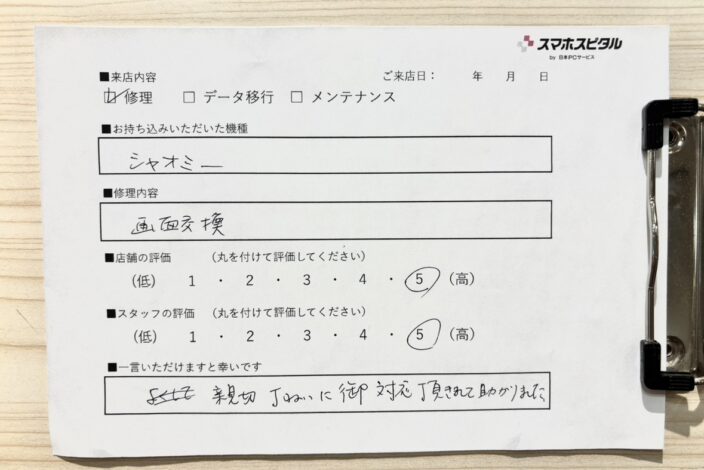 スマホスピタル
by 日本PCサービス
■来店内容 ご来店日： 年 月 日
☑修理 □ データ移行 □ メンテナンス
■お持ち込みいただいた機種
シャオミー
■修理内容
画面交換
■店舗の評価 （丸を付けて評価してください）
（低） 1 ・ 2 ・ 3 ・ 4 ・ 5 （高）
■スタッフの評価 （丸を付けて評価してください）
（低） 1 ・ 2 ・ 3 ・ 4 ・ 5 （高）
■一言いただけますと幸いです
親切 丁ねいに御対応頂きれて助かりました